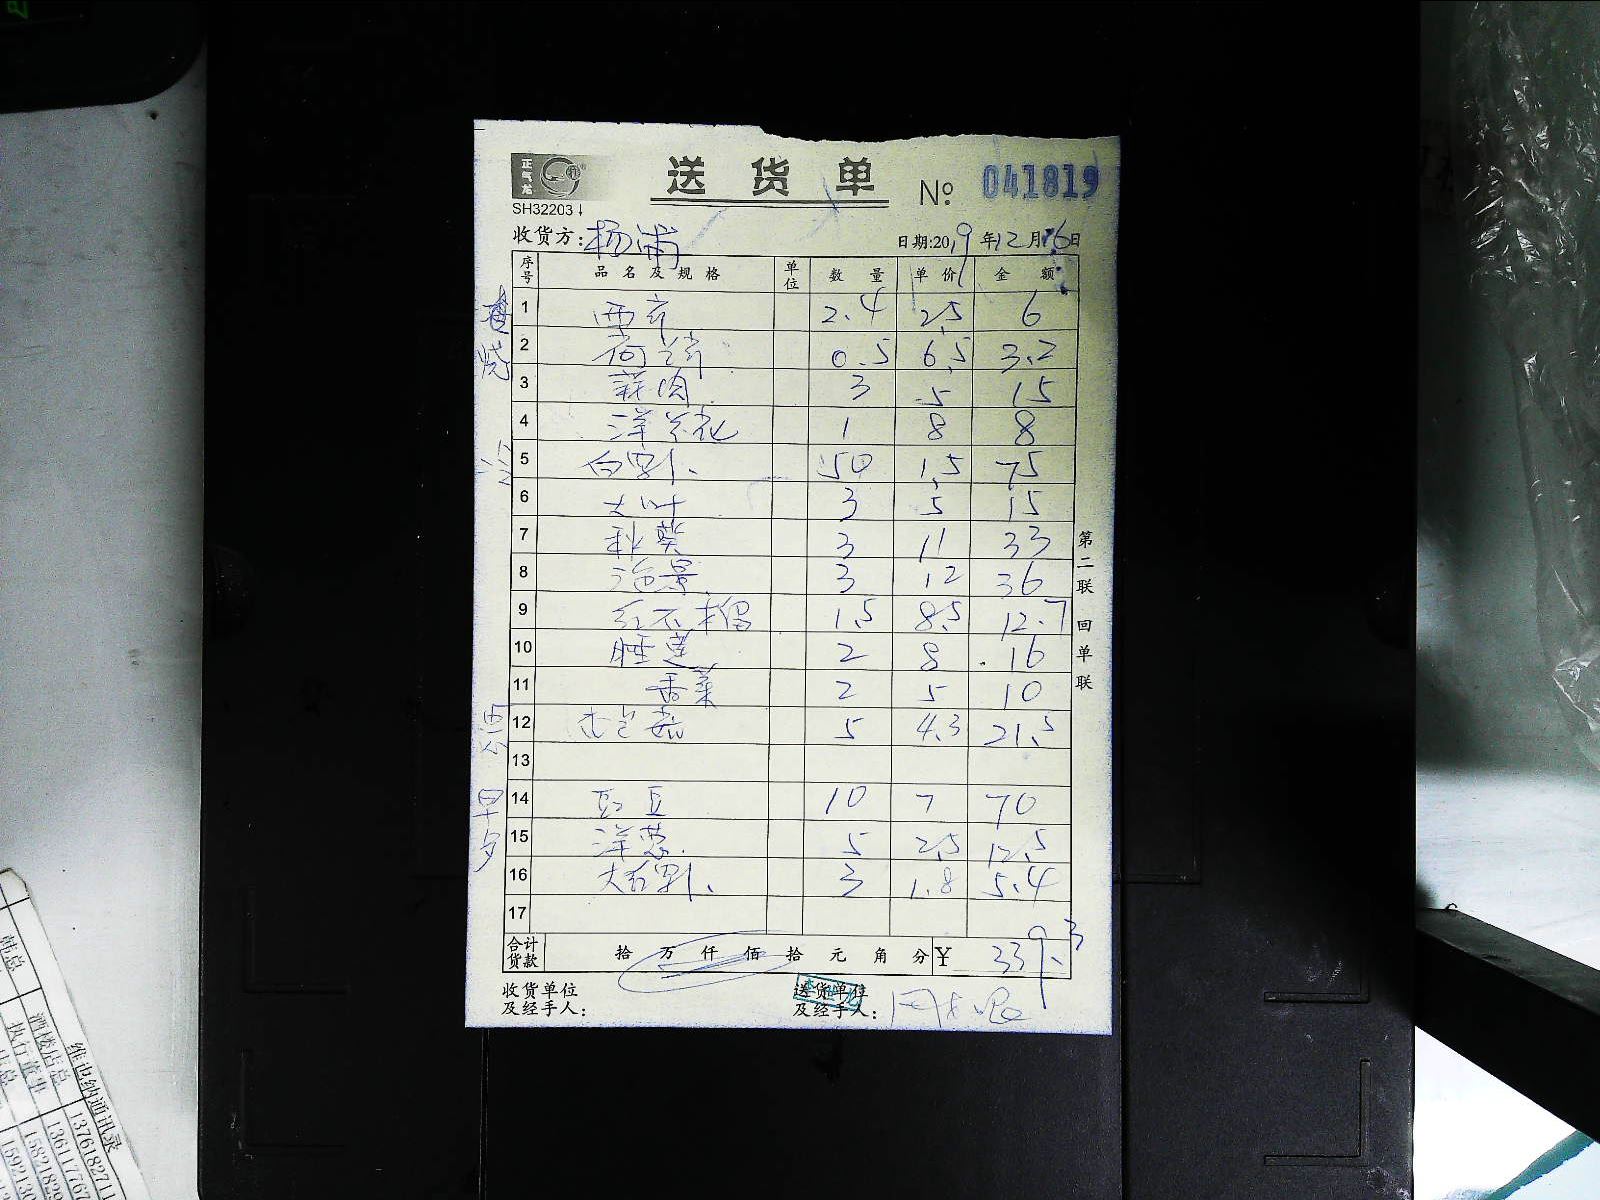 正气龙
送货单 № 041819
SH32203
收货方: 杨浦 日期:2019年12月16日
序号 品名及规格 单位 数量 单价 金额
1 西芹 2.4 2.5 6
2 0.5 6.5 3.2
3 菇肉 3 5 15
4 洋兰花 1 8 8
5 白萝卜 50 1.5 75
6 大叶 3 5 15
7 秋葵 3 11 33
8 3 12 36
9 1.5 8.5 12.7
10 睡莲 2 8 16
11 香菜 2 5 10
12 杏包菇 5 4.3 21.5
13
14 豇豆 10 7 70
15 洋葱 5 2.5 12.5
16 大红萝卜 3 1.8 5.4
17
合计货款 拾万仟佰拾元角分 ¥ 339.3
收货单位及经手人: 送货单位及经手人:
第二联 回单联
烧
早夕
韩总
酒楼店总
执行董事
店总
维也纳通讯录